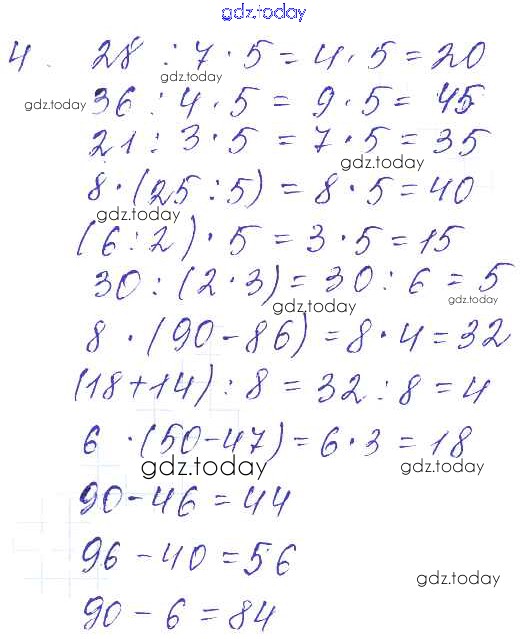 gdz.today
4. 28 : 7 · 5 = 4 · 5 = 20
gdz.today
36 : 4 · 5 = 9 · 5 = 45
gdz.today
21 : 3 · 5 = 7 · 5 = 35
gdz.today
8 · (25 : 5) = 8 · 5 = 40
gdz.today
(6 : 2) · 5 = 3 · 5 = 15
30 : (2 · 3) = 30 : 6 = 5
gdz.today
gdz.today
8 · (90 - 86) = 8 · 4 = 32
gdz.today
(18 + 14) : 8 = 32 : 8 = 4
6 · (50 - 47) = 6 · 3 = 18
gdz.today
gdz.today
90 - 46 = 44
96 - 40 = 56
gdz.today
90 - 6 = 84